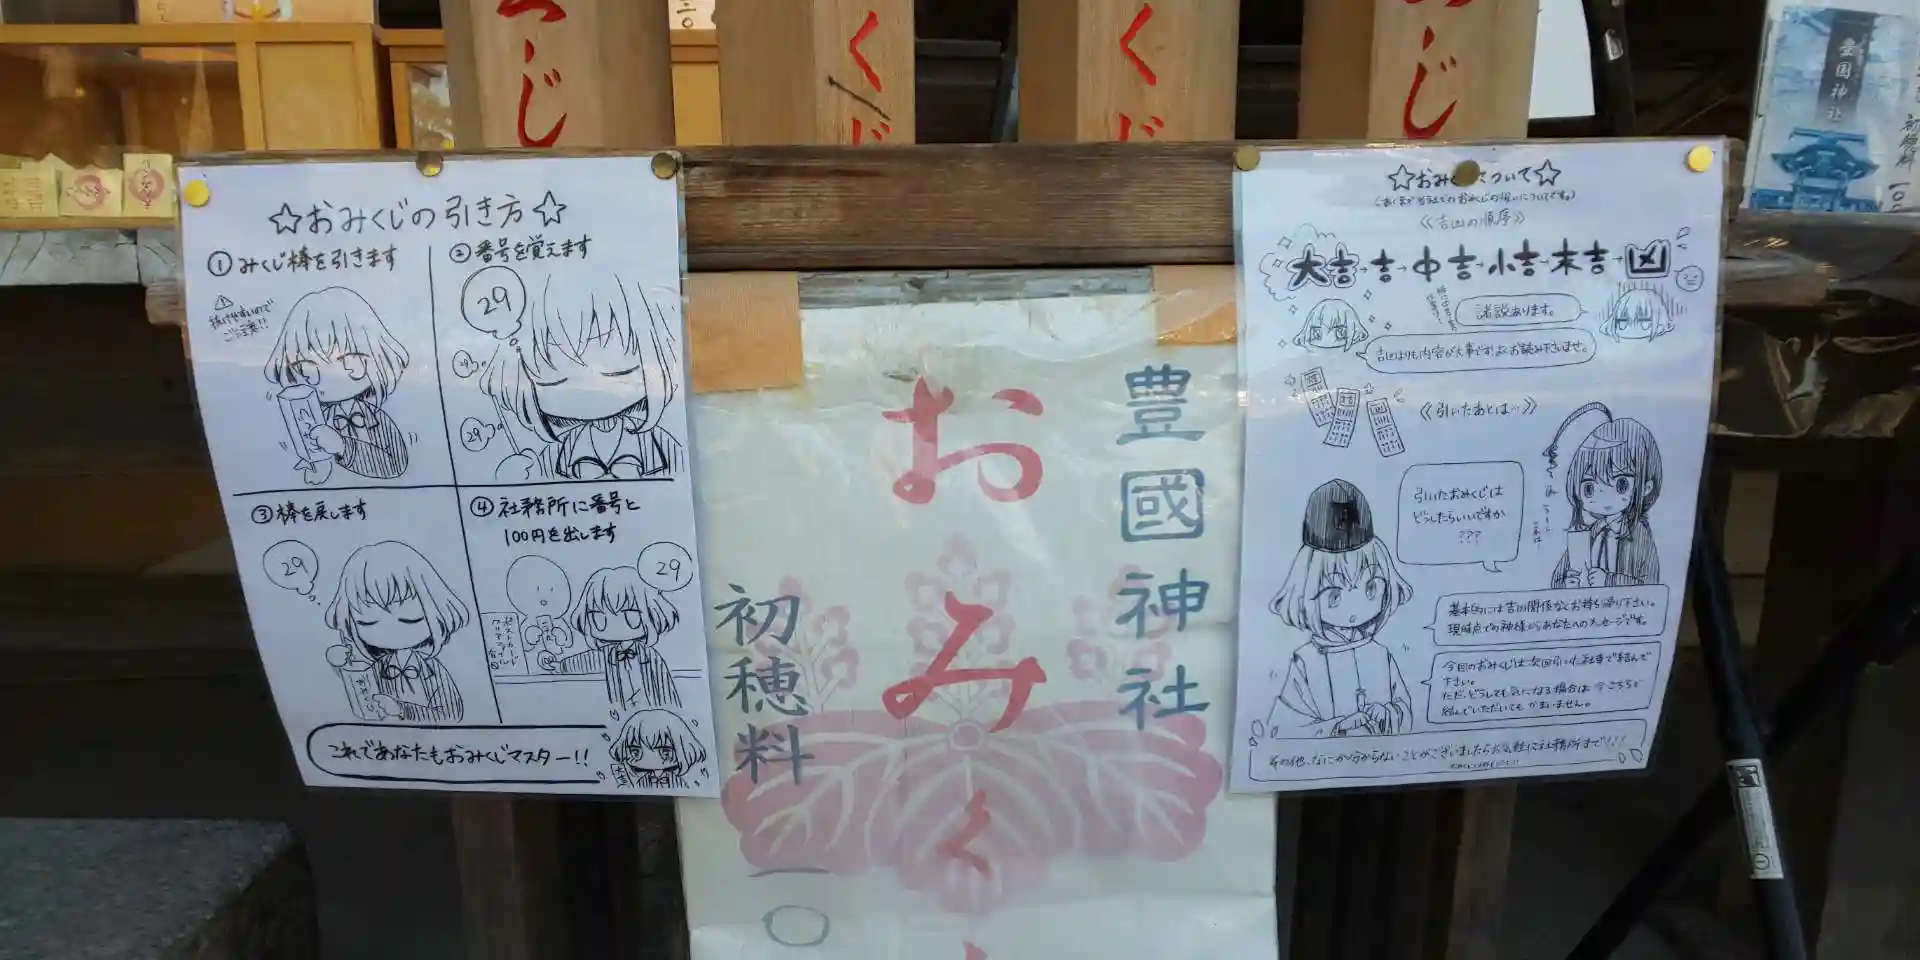 ☆おみくじの引き方☆
①みくじ棒を引きます
⚠
抜けやすいので
ご注意!!
②番号を覚えます
29
29
29
③棒を戻します
29
④社務所に番号と
100円を出します
29
これであなたもおみくじマスター!!
豊國神社
おみく
初穂料
一〇
☆おみくじについて☆
(あくまで当社でのおみくじの扱いについてです。)
《吉凶の順序》
大吉→吉→中吉→小吉→末吉→凶
諸説あります。
吉凶よりも内容が大事です!よくお読み下さいませ。
《引いたあとは…》
引いたおみくじは
どうしたらいいですか
???
基本的には吉凶関係なくお持ち帰り下さい。
現時点での神様からあなたへのメッセージです。
今回のおみくじは次回引いた社寺で結んで
下さい。
ただ、どうしても気になる場合は今こちらで
結んでいただいてもかまいません。
その他、なにか分からないことがございましたらお気軽に社務所まで!!!
くじ
くじ
くじ
・じ
豊国神社
初穂料